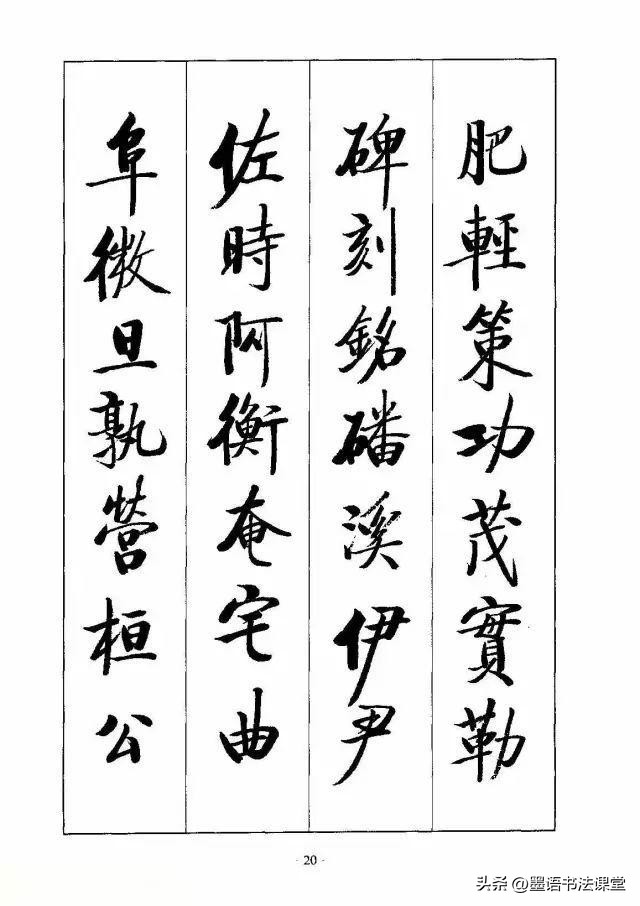 肥輕策功茂實勒
碑刻銘磻溪伊尹
佐時阿衡奄宅曲
阜微旦孰營桓公
· 20 ·
头条 @墨语书法课堂